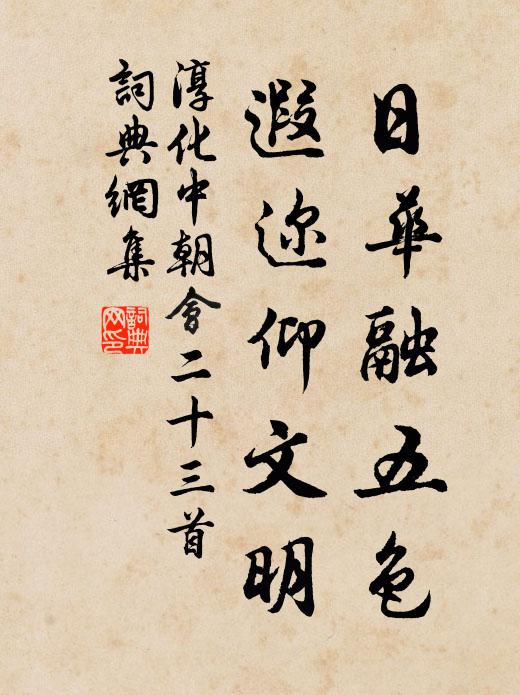 日華融五色
遐迩仰文明
淳化中朝會二十三首
詞典網集
詞典网印